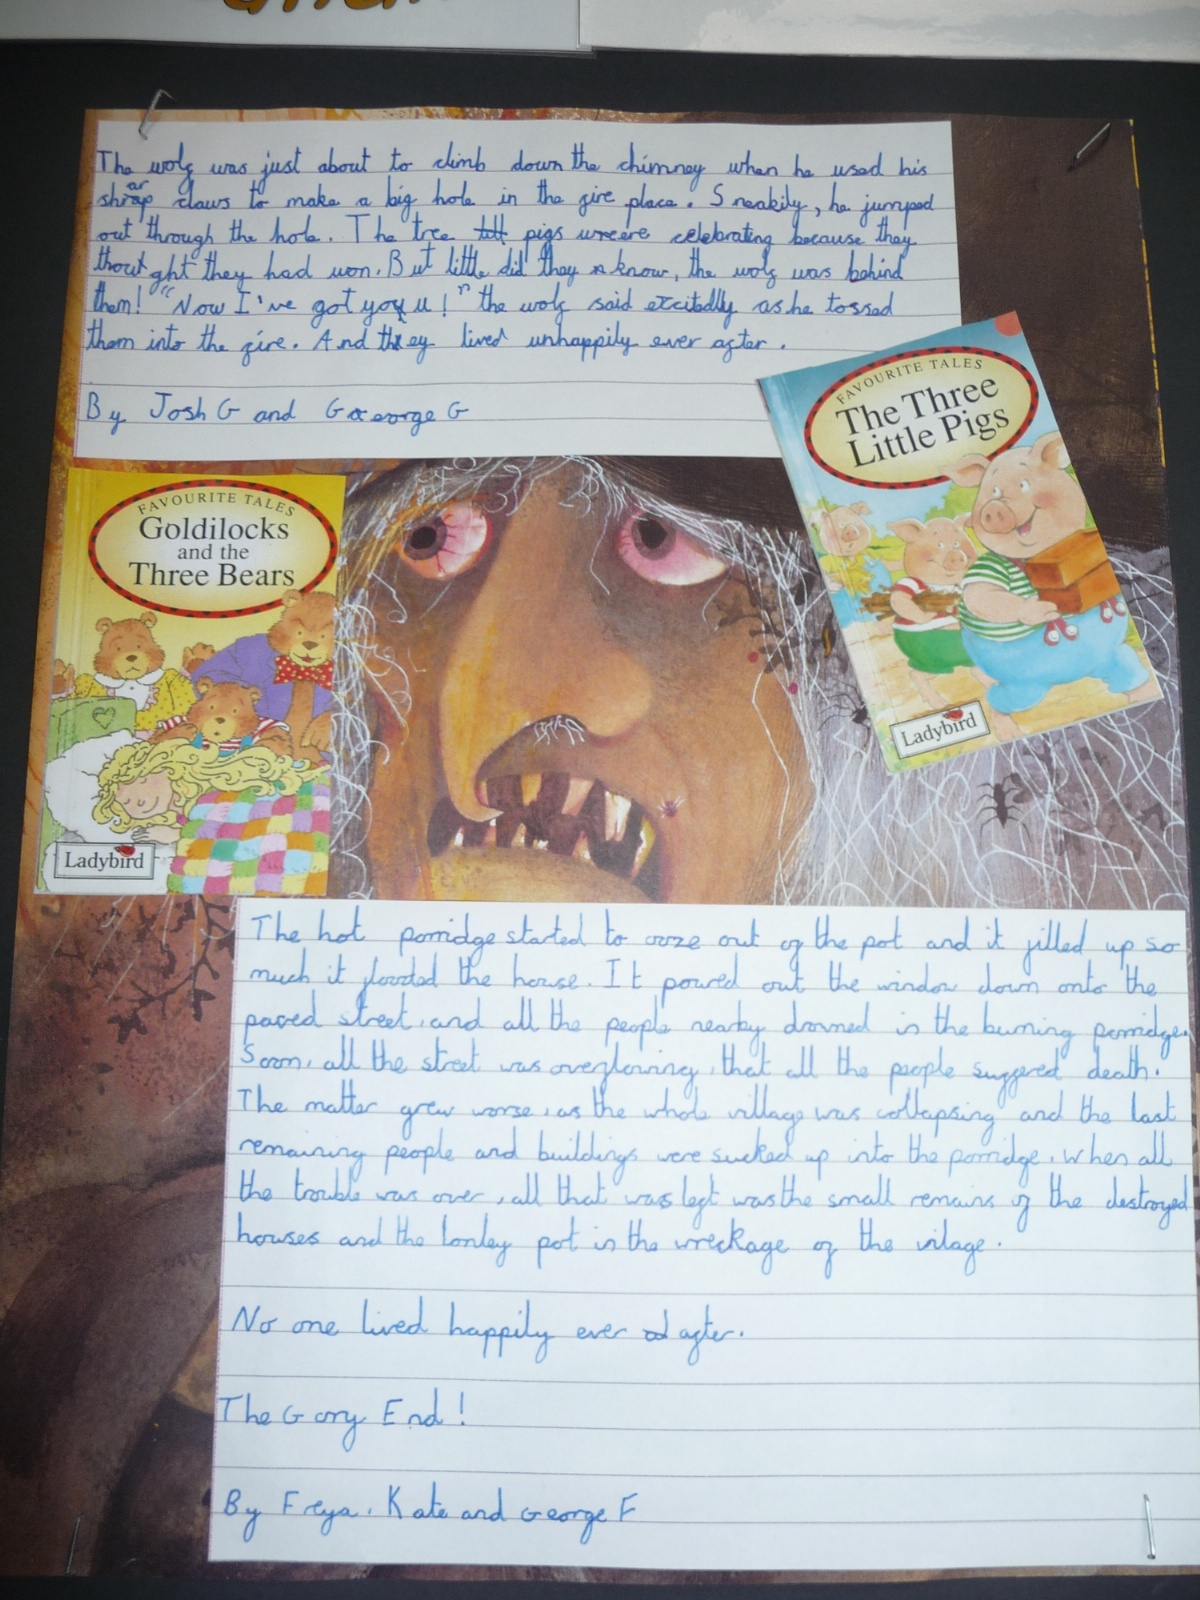 The wolf was just about to climb down the chimney when he used his
shrap ar claws to make a big hole in the fire place. Sneakily, he jumped
out through the hole. The tree pigs weere celebrating because they
thought they had won. But little did they know, the wolf was behind
them! "Now I've got you!" the wolf said excitedly as he tossed
them into the fire. And they lived unhappily ever after.
By Josh G and George G
FAVOURITE TALES
The Three
Little Pigs
Ladybird
FAVOURITE TALES
Goldilocks
and the
Three Bears
Ladybird
The hot porridge started to ooze out of the pot and it filled up so
much it flooded the house. It poured out the window down onto the
paved street, and all the people nearby drowned in the burning porridge.
Soon, all the street was overflowing, that all the people suffered death.
The matter grew worse, as the whole village was collapsing and the last
remaining people and buildings were sucked up into the porridge. When all
the trouble was over, all that was left was the small remains of the destroyed
houses and the lonley pot in the wreckage of the vilage.
No one lived happily ever after.
The Gory End!
By Freya, Kate and George F